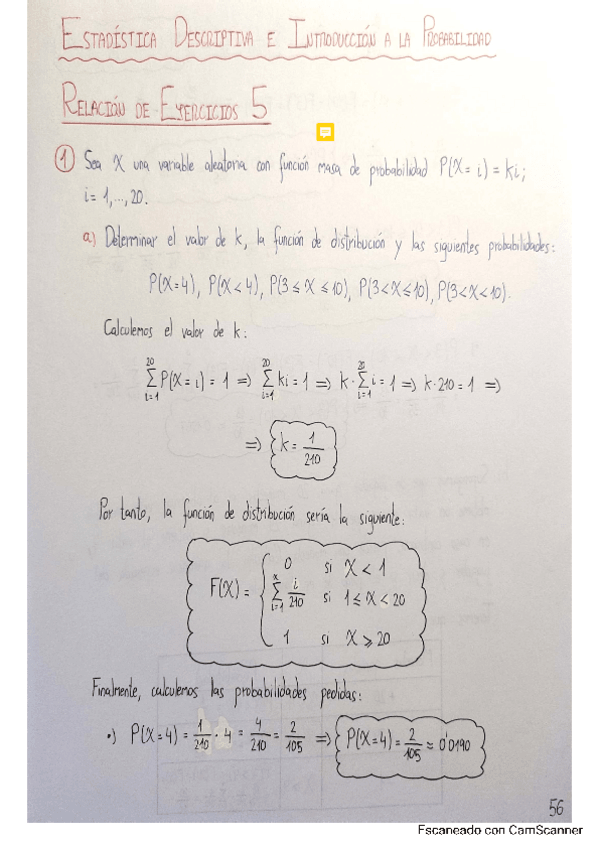 ESTADÍSTICA DESCRIPTIVA E INTRODUCCIÓN A LA PROBABILIDAD
RELACIÓN DE EJERCICIOS 5
① Sea X una variable aleatoria con función masa de probabilidad P(X=i)=ki;
i=1,...,20.
a) Determinar el valor de k, la función de distribución y las siguientes probabilidades:
P(X=4), P(X<4), P(3≤X≤10), P(3<X≤10), P(3<X<10).
Calculemos el valor de k:
∑_{i=1}^{20} P(X=i)=1 ⇒ ∑_{i=1}^{20} ki=1 ⇒ k·∑_{i=1}^{20} i=1 ⇒ k·210=1 ⇒
⇒ k=1/210
Por tanto, la función de distribución sería la siguiente:
F(X)= { 0 si X<1
∑_{i=1}^{x} i/210 si 1≤X<20
1 si X≥20
Finalmente, calculemos las probabilidades pedidas:
•) P(X=4)=1/210·4=4/210=2/105 ⇒ P(X=4)=2/105≈0'0190
56
Escaneado con CamScanner